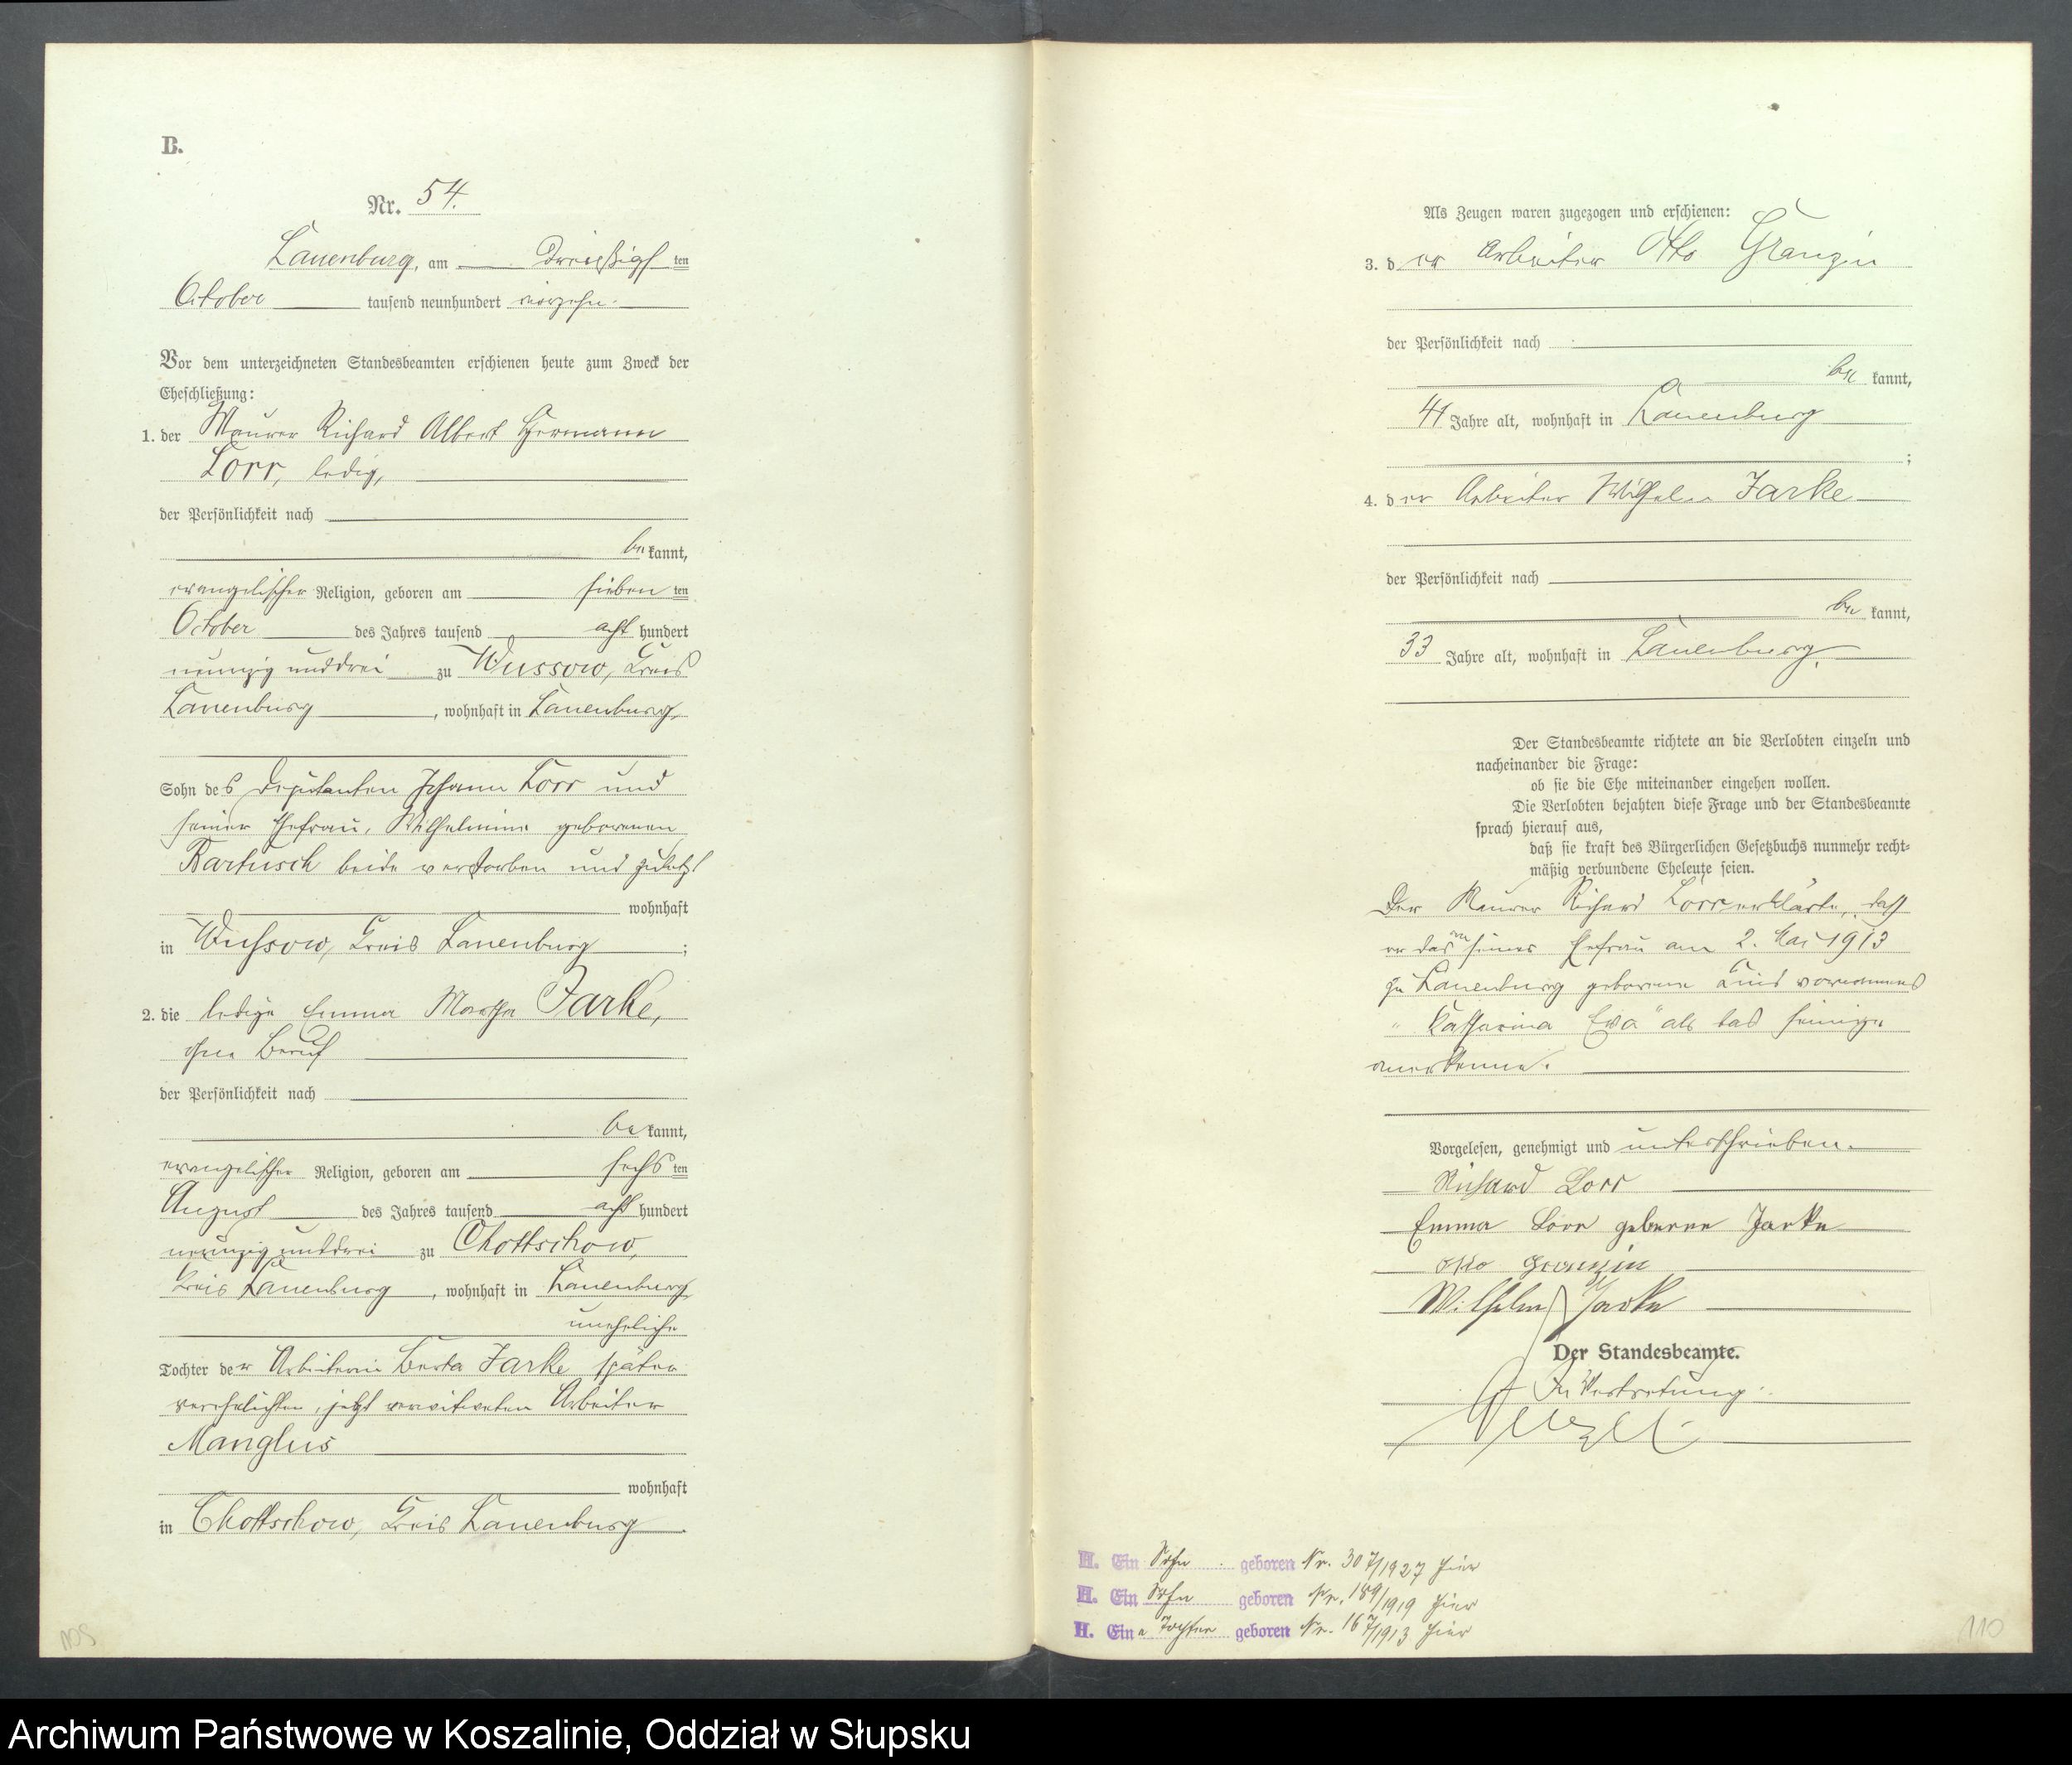 B.
Nr. 54.
Lauenburg, am Dreißigsten
October tausend neunhundert vierzehn.
Vor dem unterzeichneten Standesbeamten erschienen heute zum Zweck der
Eheschließung:
1. der Maurer Richard Albert Hermann
Lorr, ledig,
der Persönlichkeit nach
bekannt,
evangelischer Religion, geboren am siebenten
October des Jahres tausend acht hundert
neunzig und drei zu Wussow, Kreis
Lauenburg, wohnhaft in Lauenburg,
Sohn des Deputanten Johann Lorr und
seiner Ehefrau, Wilhelmine geborenen
Bartusch beide verstorben und zuletzt
wohnhaft
in Wussow, Kreis Lauenburg;
2. die ledige Emma Martha Jarke,
ohne Beruf
der Persönlichkeit nach
bekannt,
evangelischer Religion, geboren am sechsten
August des Jahres tausend acht hundert
neunzig und drei zu Chottschow,
Kreis Lauenburg, wohnhaft in Lauenburg,
uneheliche
Tochter der Arbeiterin Berta Jarke später
verehelichten, jetzt verwitweten Arbeiter
Manglus
wohnhaft
in Chottschow, Kreis Lauenburg.
Als Zeugen waren zugezogen und erschienen:
3. der Arbeiter Otto Granzin
der Persönlichkeit nach
bekannt,
41 Jahre alt, wohnhaft in Lauenburg
;
4. der Arbeiter Wilhelm Jarke
der Persönlichkeit nach
bekannt,
33 Jahre alt, wohnhaft in Lauenburg.
Der Standesbeamte richtete an die Verlobten einzeln und
nacheinander die Frage:
ob sie die Ehe miteinander eingehen wollen.
Die Verlobten bejahten diese Frage und der Standesbeamte
sprach hierauf aus,
daß sie kraft des Bürgerlichen Gesetzbuchs nunmehr recht-
mäßig verbundene Eheleute seien.
Der Maurer Richard Lorr erklärte, daß
er das von seiner Ehefrau am 2. Mai 1913
zu Lauenburg geborene Kind vornamens
"Katharina Eva" als das seinige
anerkenne.
Vorgelesen, genehmigt und unterschrieben.
Richard Lorr
Emma Lorr geborene Jarke
Otto Granzin
Wilhelm Jarke
Der Standesbeamte.
In Vertretung.
H. Ein Sohn geboren Nr. 307/1927 hier
H. Ein Sohn geboren Nr. 189/1919 hier
H. Eine Tochter geboren Nr. 167/1913 hier
110
Archiwum Państwowe w Koszalinie, Oddział w Słupsku